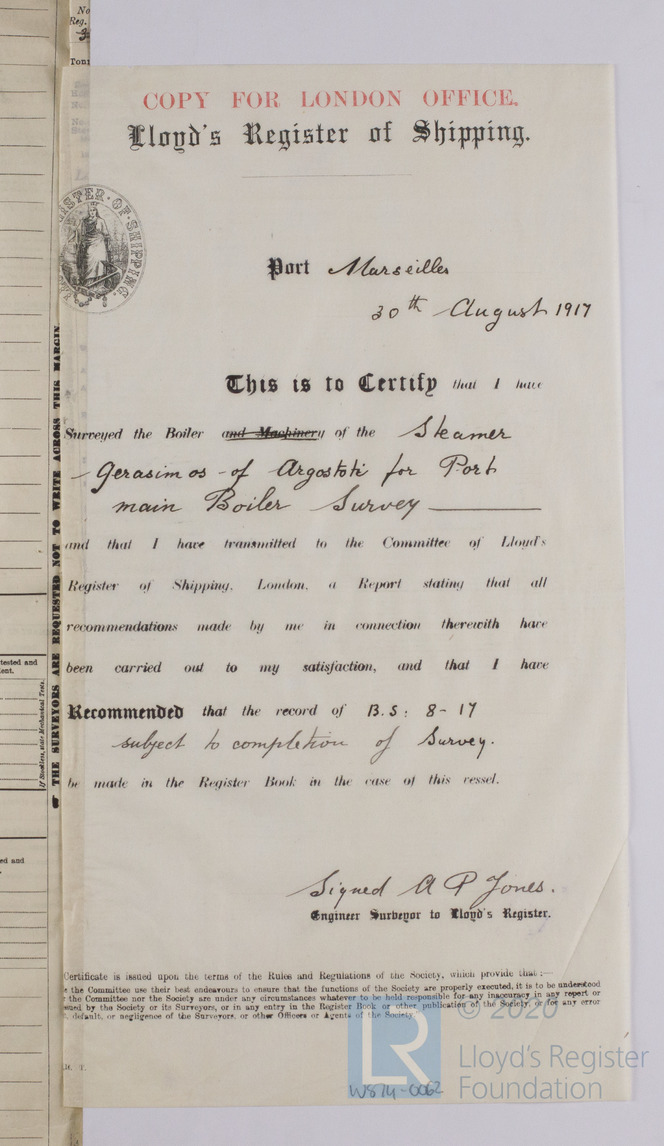 No
Reg.
Toni
COPY FOR LONDON OFFICE.
Lloyd's Register of Shipping.
REGISTER · OF · SHIPPING.
Port Marseilles
30th August 1917
This is to Certify that I have
Surveyed the Boiler and Machinery of the Steamer
Gerasimos - of Argostoti for Port
main Boiler Survey
and that I have transmitted to the Committee of Lloyd's
Register of Shipping, London, a Report stating that all
recommendations made by me in connection therewith have
been carried out to my satisfaction, and that I have
Recommended that the record of B.S: 8-17
subject to completion of Survey.
be made in the Register Book in the case of this vessel.
Signed A P Jones.
Engineer Surveyor to Lloyd's Register.
Certificate is issued upon the terms of the Rules and Regulations of the Society, which provide that :—
the Committee use their best endeavours to ensure that the functions of the Society are properly executed, it is to be understood
the Committee nor the Society are under any circumstances whatever to be held responsible for any inaccuracy in any report or
issued by the Society or its Surveyors, or in any entry in the Register Book or other publication of the Society, or for any error
default, or negligence of the Surveyors, or other Officers or Agents of the Society."
THE SURVEYORS ARE REQUESTED NOT TO WRITE ACROSS THIS MARGIN
tested and
ent.
If Steelless, state Mechanical Tests.
ed and
T.
W874-0062
© 2020
LR
Lloyd's Register
Foundation